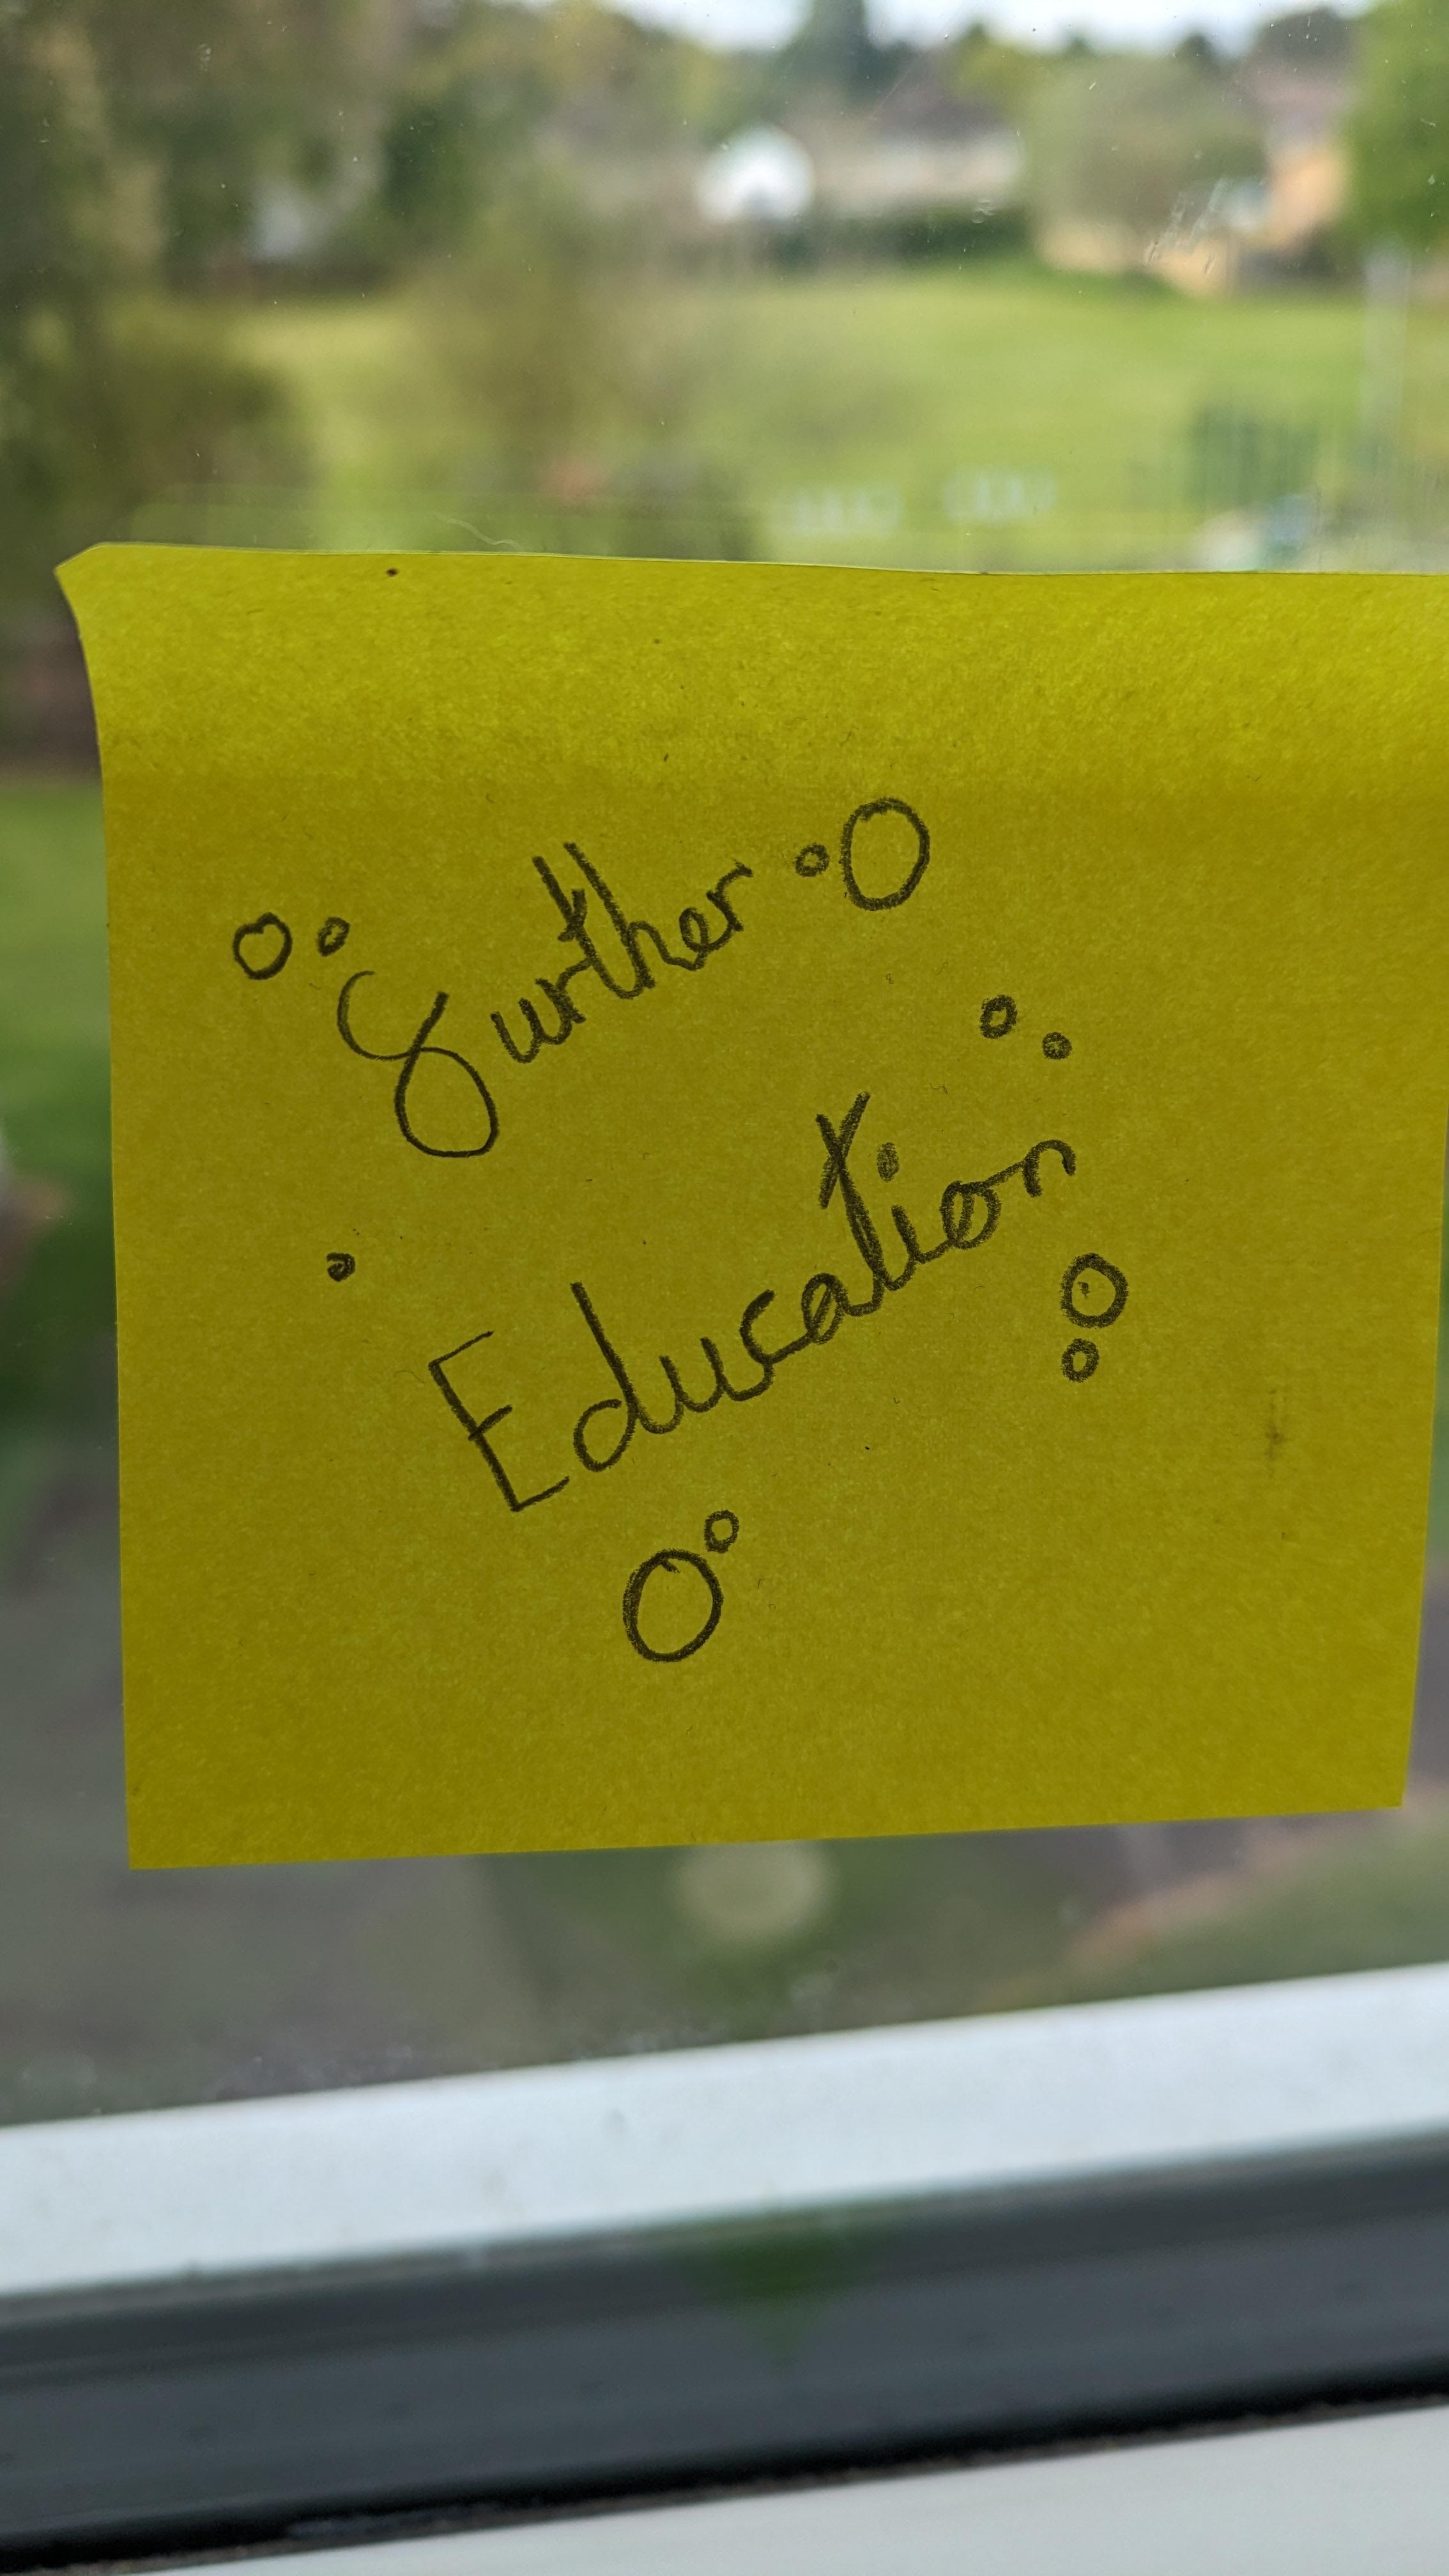 Further
Education